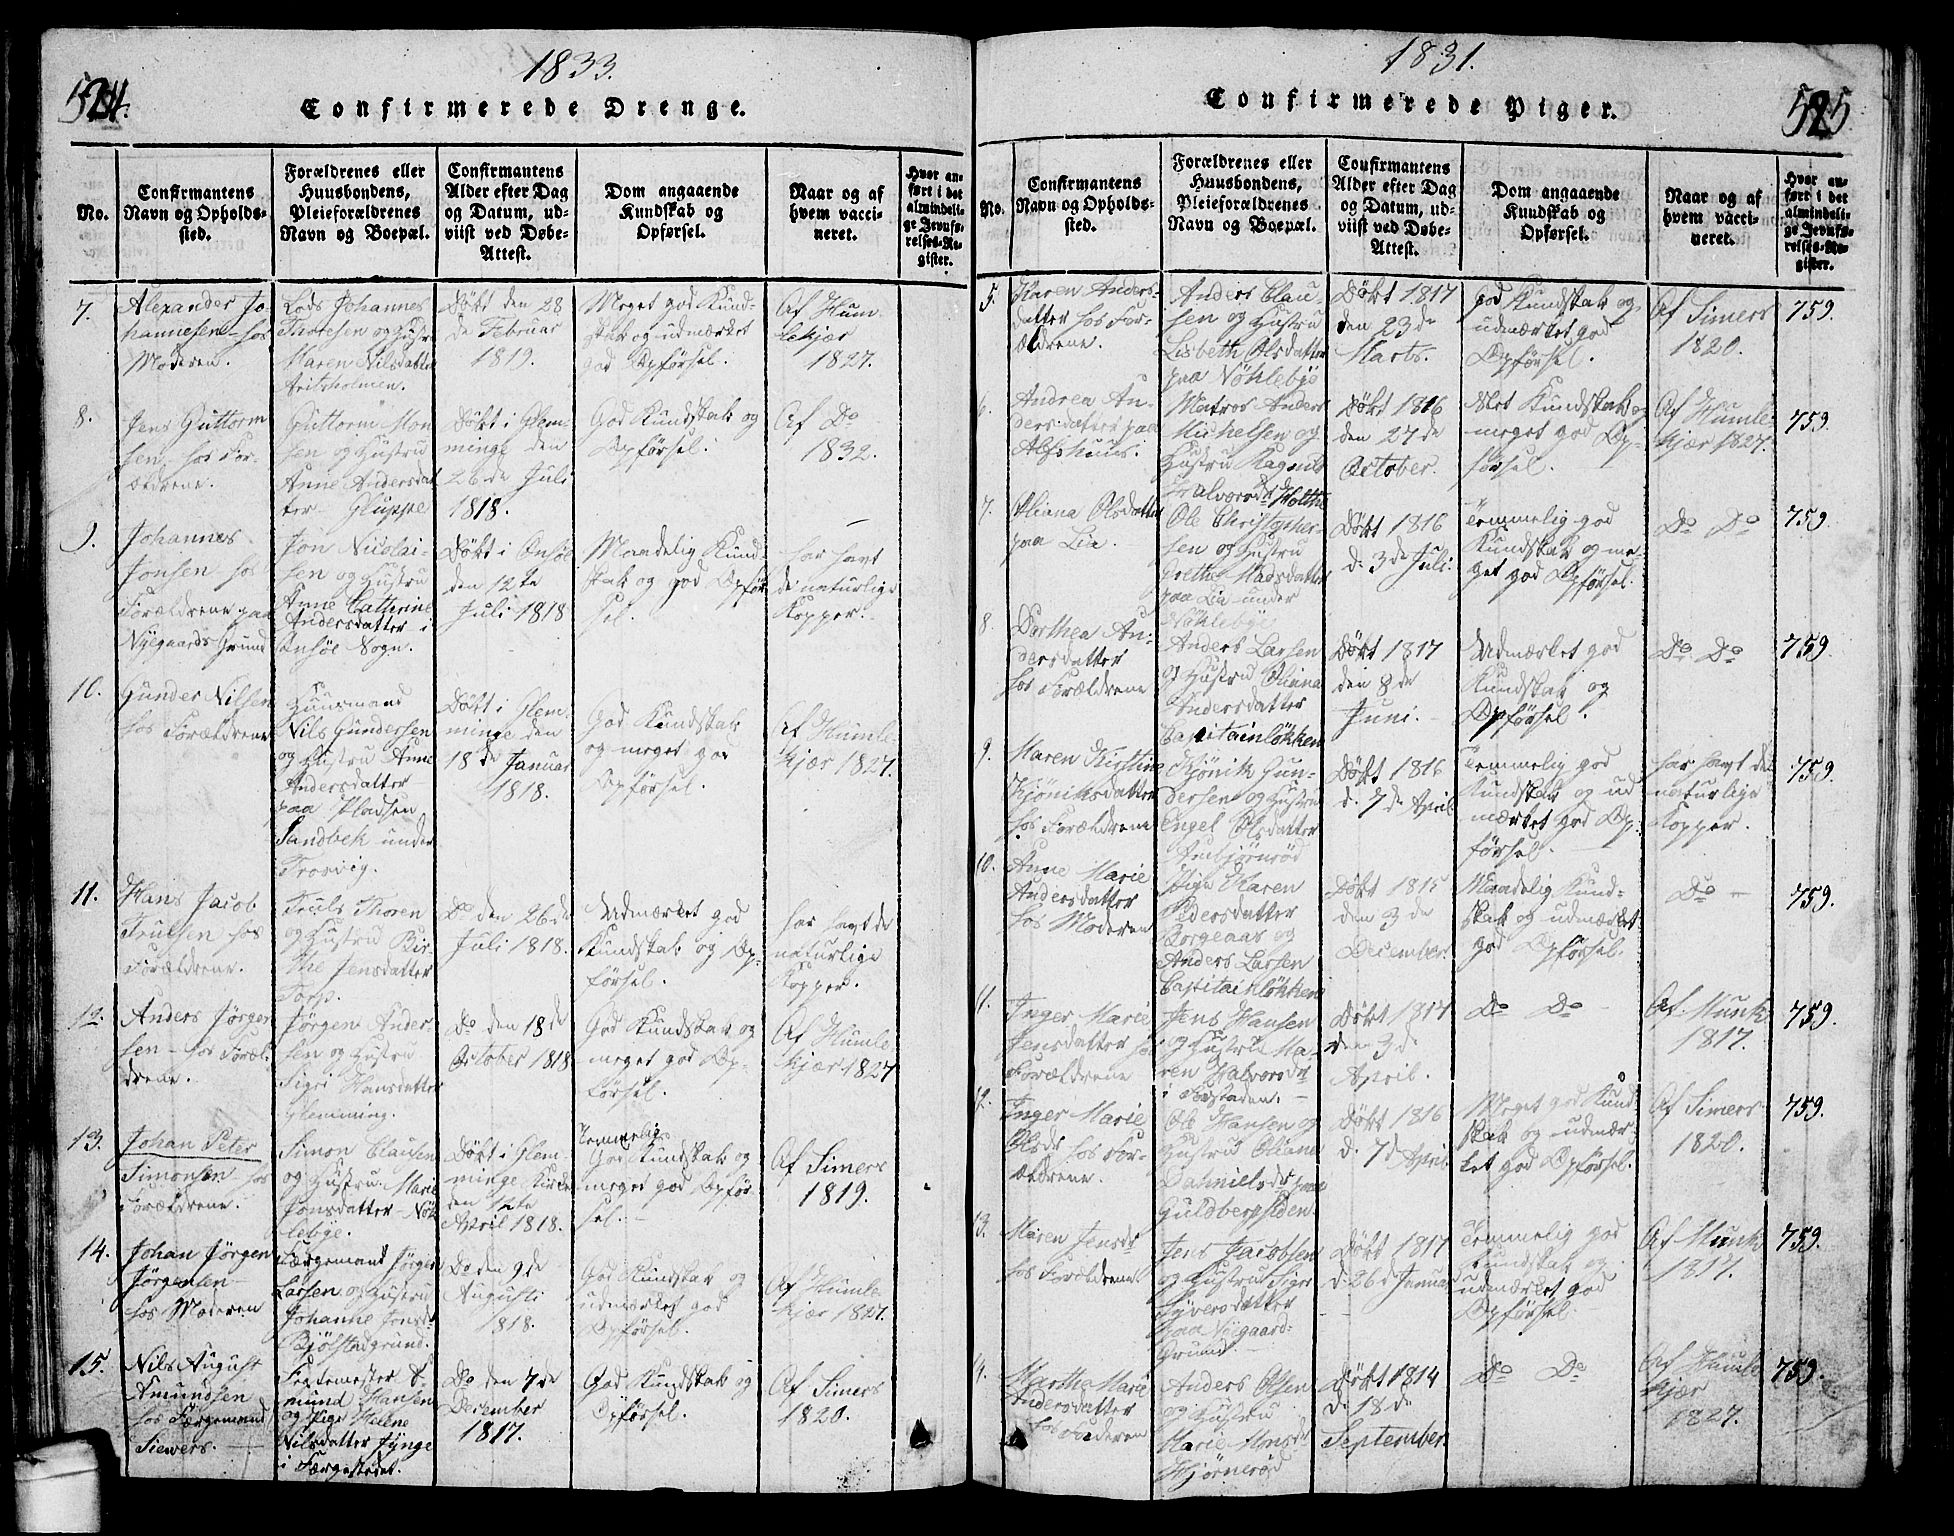 1833.
524.
Confirmerede Drenge.
No.
Confirmantens
Navn og Opholds-
sted.
Forældrenes eller
Huusbondens,
Pleieforældrenes
Navn og Boepæl.
Confirmantens
Alder efter Dag
og Datum, ud-
viist ved Døbe-
Attest.
Dom angaaende
Kundskab og
Opførsel.
Naar og af
hvem vacci-
neret.
Hvor an-
ført i det
almindeli-
ge Jevnfø-
relses-Re-
gister.
7.
Alexander Jo-
hannesen hos
Moderen.
Lods Johannes
Thoresen og Hustru
Maren Nilsdatter
Døbt den 28
de Februar
1819.
Meget god Kund-
skab og udmærket
god Opførsel.
Af Hum-
lekjær
1827.
8.
Jens Guttorm
sen hos For-
ældrene.
Guttorm Mon
sen og Hustru
Anne Andersdat
ter Gluppe
Døbt i Glem-
minge den
26de Juli
1818.
God Kundskab og
Opførsel.
Af Do
1832.
9.
Johannes
Jonsen hos
Forældrene paa
Nygaards Grund
Jon Nicolai-
sen og Hustru
Anne Cathrine
Andersdatter i
Onsøe Sogn.
Døbt i Onsøe
den 12te
Juli 1818
Maadelig Kund-
skab og god Opfør
sel.
har havt
de naturlige
Kopper.
10.
Gunder Nilsen
hos Forældrene
Huusmand
Nils Gundersen
og Hustru Anne
Andersdatter
paa Pladsen
Sandbek under
Trosvig.
Døbt i Glem-
minge den
18de Januar
1818.
God Kundskab
og meget god
Opførsel.
Af Humle-
kjær 1827.
11.
Hans Jacob
Trulsen hos
Forældrene.
Truls Thoren
og Hustru Bir-
the Jensdatter
Torp.
Do den 26de
Juli 1818.
Udmærket god
Kundskab og Op-
førsel.
har havt de
naturlige
Kopper.
12.
Anders Jørgen
sen hos Foræl-
drene.
Jørgen Ander-
sen og Hustru
Sigri Hansdatter
Glemming.
Do den 18de
October 1818
God Kundskab og
meget god Op-
førsel.
Af Humle-
kjær 1827
13.
Johan Peter
Simonsen hos
Forældrene.
Simon Clausen
og Hustru Marie
Jonsdatter Nøh
lebye.
Døbt i Glem-
minge Kirke
den 12te
April 1818.
Temmelig
God Kundskab og
meget god Opfør
sel.
Af Simers
1819.
14.
Johan Jørgen
Jørgensen
hos Moderen
Færgemand Jørgen
Larsen og Hustru
Johanne Jonsd.
Bjølstadgrund.
Do den 9de
Augusti
1818.
God Kundskab og
udmærket god
Opførsel.
Af Humle-
kjær 1827.
15.
Nils August
Amundsen
hos Færgemand
Siewers.
Do den 7de
December
1817.
mund Hansen
og Pige Helene
Nilsdatter Lynge
i Færgestedet.
God Kundskab og
Opførsel.
Af Simers
1820.
1831.
525
Confirmerede Piger.
No.
Confirmantens
Navn og Opholds-
sted.
Forældrenes eller
Huusbondens,
Pleieforældrenes
Navn og Boepæl.
Confirmantens
Alder efter Dag
og Datum, ud-
viist ved Døbe-
Attest.
Dom angaaende
Kundskab og
Opførsel.
Naar og af
hvem vacci-
neret.
Hvor an-
ført i det
almindeli-
ge Jevnfø-
relses-Re-
gister.
5.
Karen Anders-
datter hos For-
ældrene.
Anders Clau-
sen og Hustru
Lisbeth Olsdatter
paa Nøhlebye
Døbt 1817
den 23de
Marts.
God Kundskab og
udmærket god
Opførsel.
Af Simers
1820.
759.
6.
Andrea An-
dersdatter paa
Alfshuus.
Matros Anders
Michelsen og
Hustru Ragnild
Halvorsdr Holthe
Døbt 1816
den 27de
October.
Slet Kundskab og
meget god Op-
førsel.
Af Humle-
kjær 1827.
759.
7.
Oliana Olsdatter
paa Lia.
Ole Christopher-
sen og Hustru
Grethe Madsdatter
paa Lia under
Nøhlebye
Døbt 1816
d. 3de Juli.
Temmelig god
Kundskab og me-
get god Opførsel.
Do Do
759.
8.
Dorthea An-
dersdatter
hos Forældrene
Anders Larsen
og Hustru Oliana
Andersdatter
Capitainløkken
Døbt 1817
den 8de
Juni.
Udmærket god
Kundskab og
Opførsel.
Do Do
759.
9.
Maren Kirstine
Kjøniksdatter
hos Forældrene
Kjønik Gun-
dersen og Hustru
Engel Olsdatter
Ambjørnrød
Døbt 1816
d. 7de April
Temmelig god
Kundskab og ud
mærket god Op-
førsel.
har havt de
naturlige
Kopper.
759.
10.
Anne Marie
Andersdatter
hos Moderen
Pige Karen
Pedersdatter
Borgeaas og
Anders Larsen
Capitainløkken
Døbt 1815
den 3de
December.
Maadelig Kund-
skab og udmærket
god Opførsel.
Do
759.
11.
Inger Marie
Jensdatter hos
Forældrene
Jens Hansen
og Hustru Ma-
ren Halvorsdr
i Forstaden.
Døbt 1817
den 3de
April.
Do Do
Af Munk
1817.
759.
12.
Inger Marie
Olsdr hos For-
ældrene.
Ole Hansen og
Hustru Oliane
Dahnielsdr paa
Guldbergsiden.
Døbt 1816
d. 7de April
Meget god Kund
skab og udmær-
ket god Opførsel.
Af Simers
1820.
759.
13.
Maren Jensdr
hos Forældrene
Jens Jacobsen
og Hustru Siger
Syversdatter
paa Nygaard-
Grund.
Døbt 1817
d. 26de Januar
Temmelig god
Kundskab og
udmærket god
Opførsel.
Af Munk
1817.
759.
14.
Martha Marie
Andersdatter
hos Faderen
Anders Olsen
og Hustru
Hjørnerød
Døbt 1814
d. 18de
September.
Do Do
Af Humle
kjær
1827.
759.